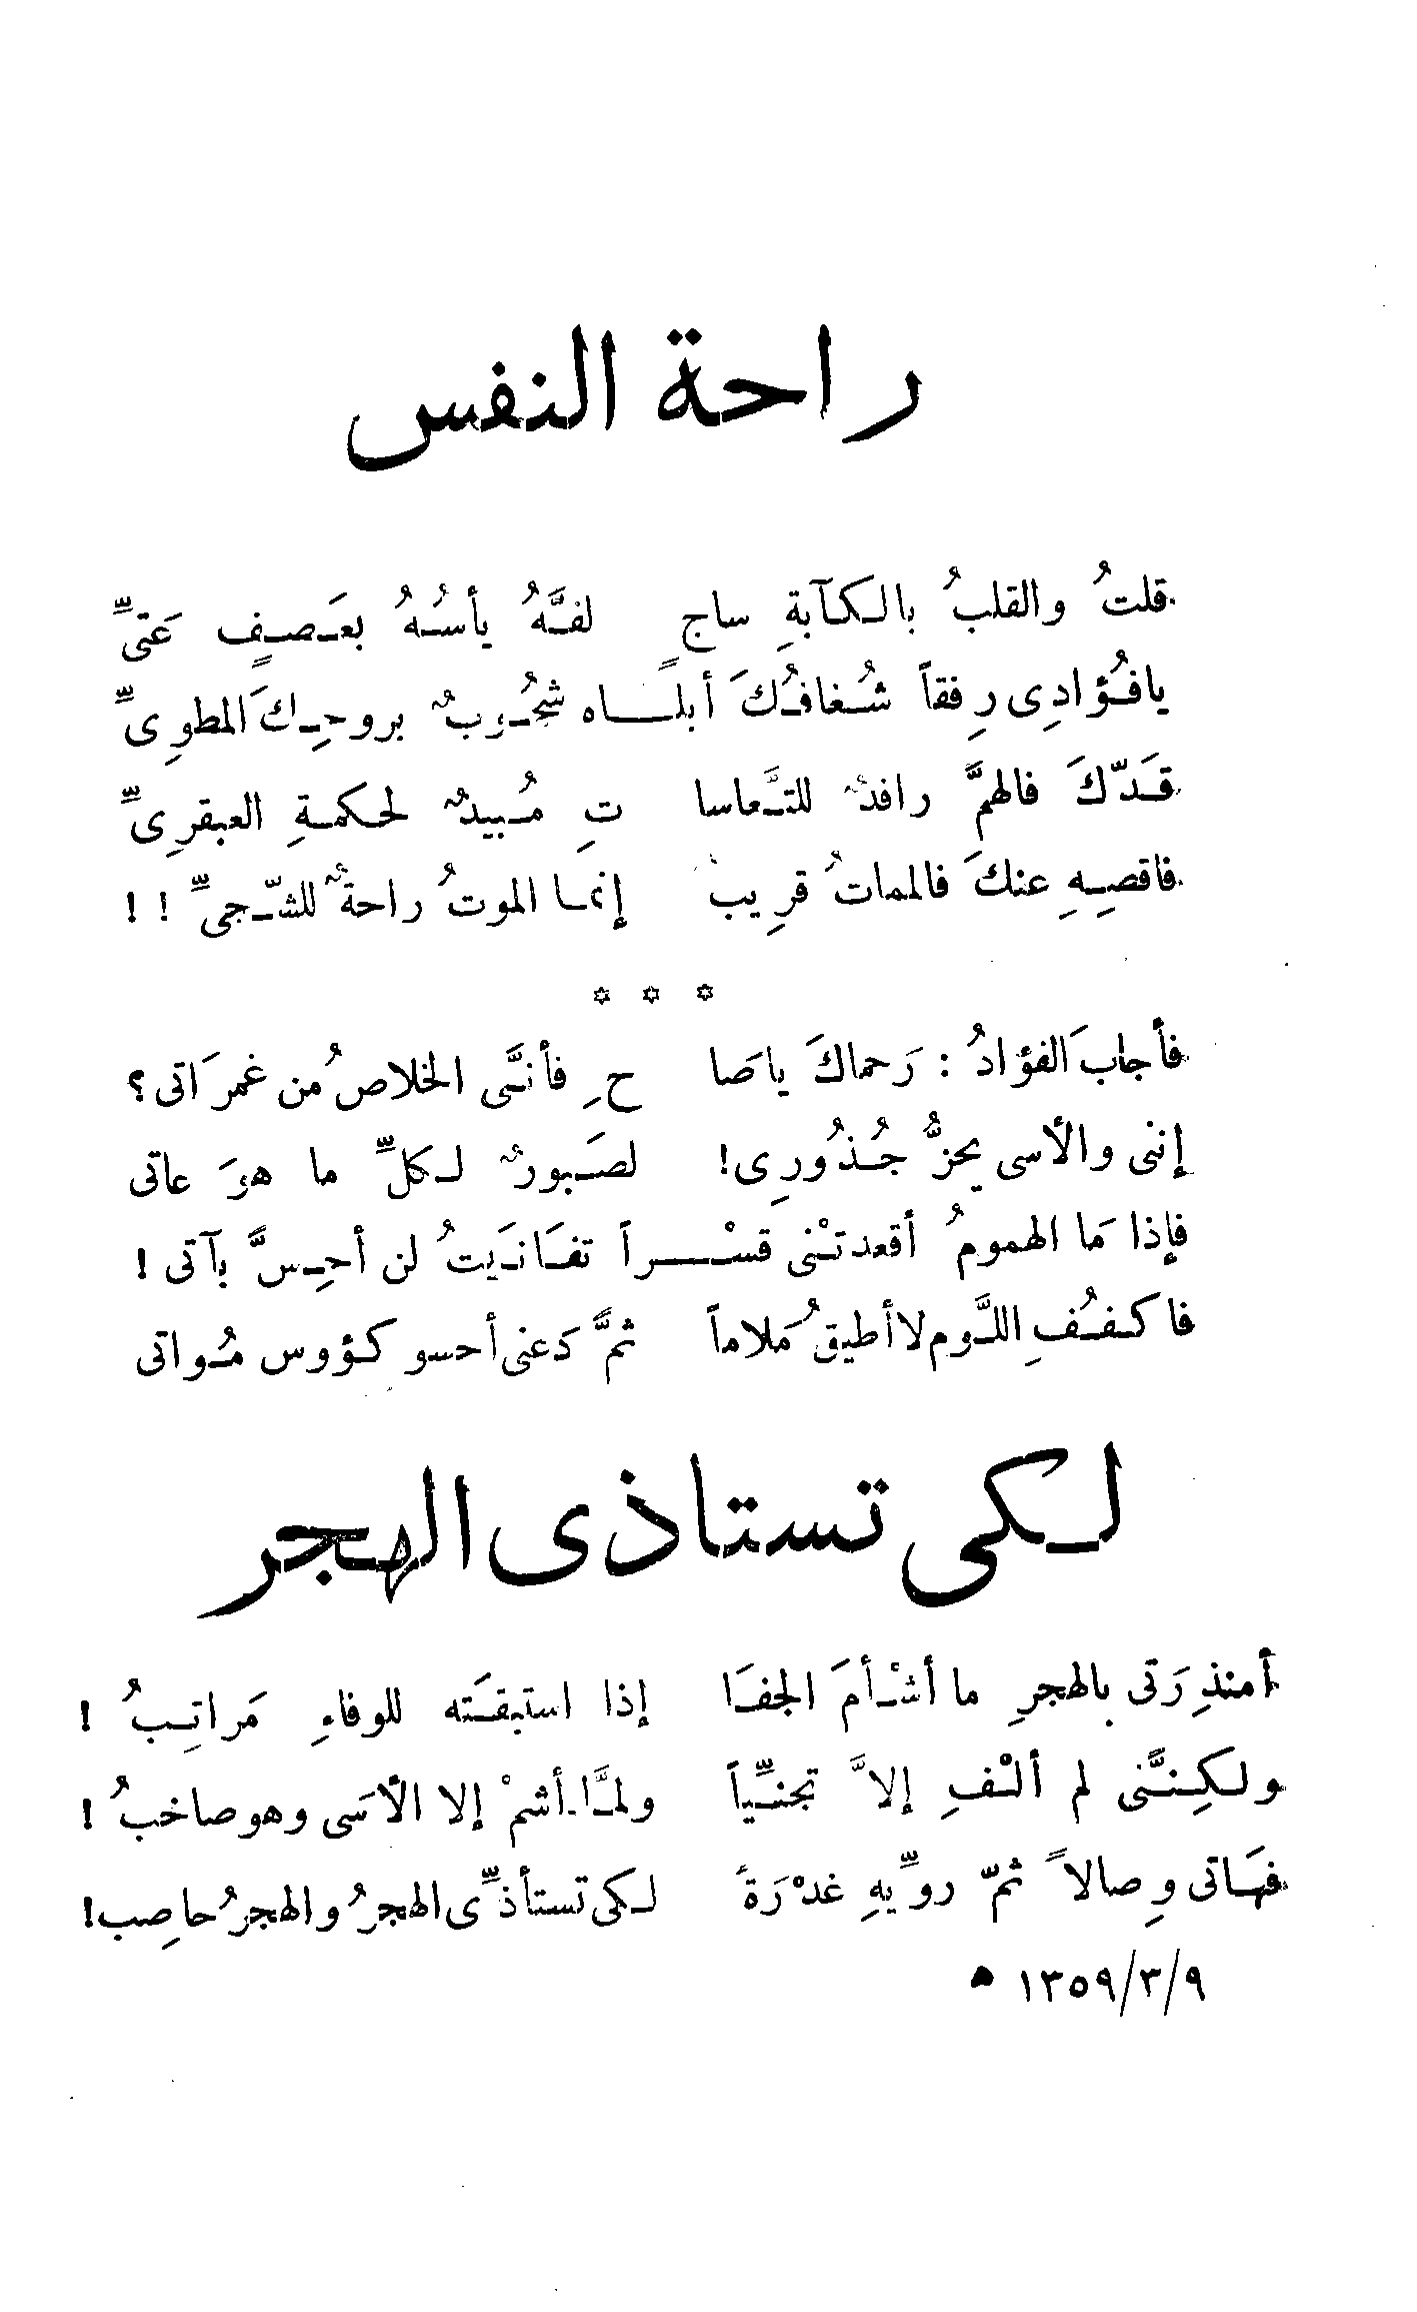 راحة النفس
قلتُ والقلبُ بالكآبةِ ساج لفَّهُ يأسُهُ بعَصفٍ عَتىِّ
يافُؤادِى رِفقاً شُغافُكَ أبلاه شحُوبٌ بروحِكَ المطوِىِّ
قَدّكَ فالهمَّ رافدٌ للتَّعاسا تِ مُبيدٌ لحكمةِ العبقرِىِّ
فاقصِهِ عنكَ فالمماتُ قرِيب إنما الموتُ راحةٌ للشّجىِّ !!
* * *
فأجابَ الفؤادُ : رَحماكَ ياصَا حِ فأنَّى الخلاصُ من غمرَاتى؟
إننى والأسى يحزُّ جُذُورِى! لصَبورٌ لكلِّ ما هوَ عاتى
فإذا مَا الهمومُ أقعدتْنى قسْراً تفَانَيتُ لن أحِسَّ بآتى !
فاكفُفِ اللَّوم لا أطيقُ مَلاماً ثمَّ دَعنى أحسو كؤوس مُواتى
لكى تستاذى الهجر
أمنذِرَتى بالهجرِ ما أشْأمَ الجفَا إذا استبقَته للوفاءِ مَراتِبُ !
ولكِنَّنى لم ألْفِ إلاَّ تجنِّياً ولمَّا أشمْ إلا الأسَى وهو صاخبُ !
فهَاتى وِصالاً ثمّ روِّيهِ غدْرَةً لكى تستأذِّى الهجرُ والهجرُ حاصِب!
١٣٥٩/٣/٩ ه